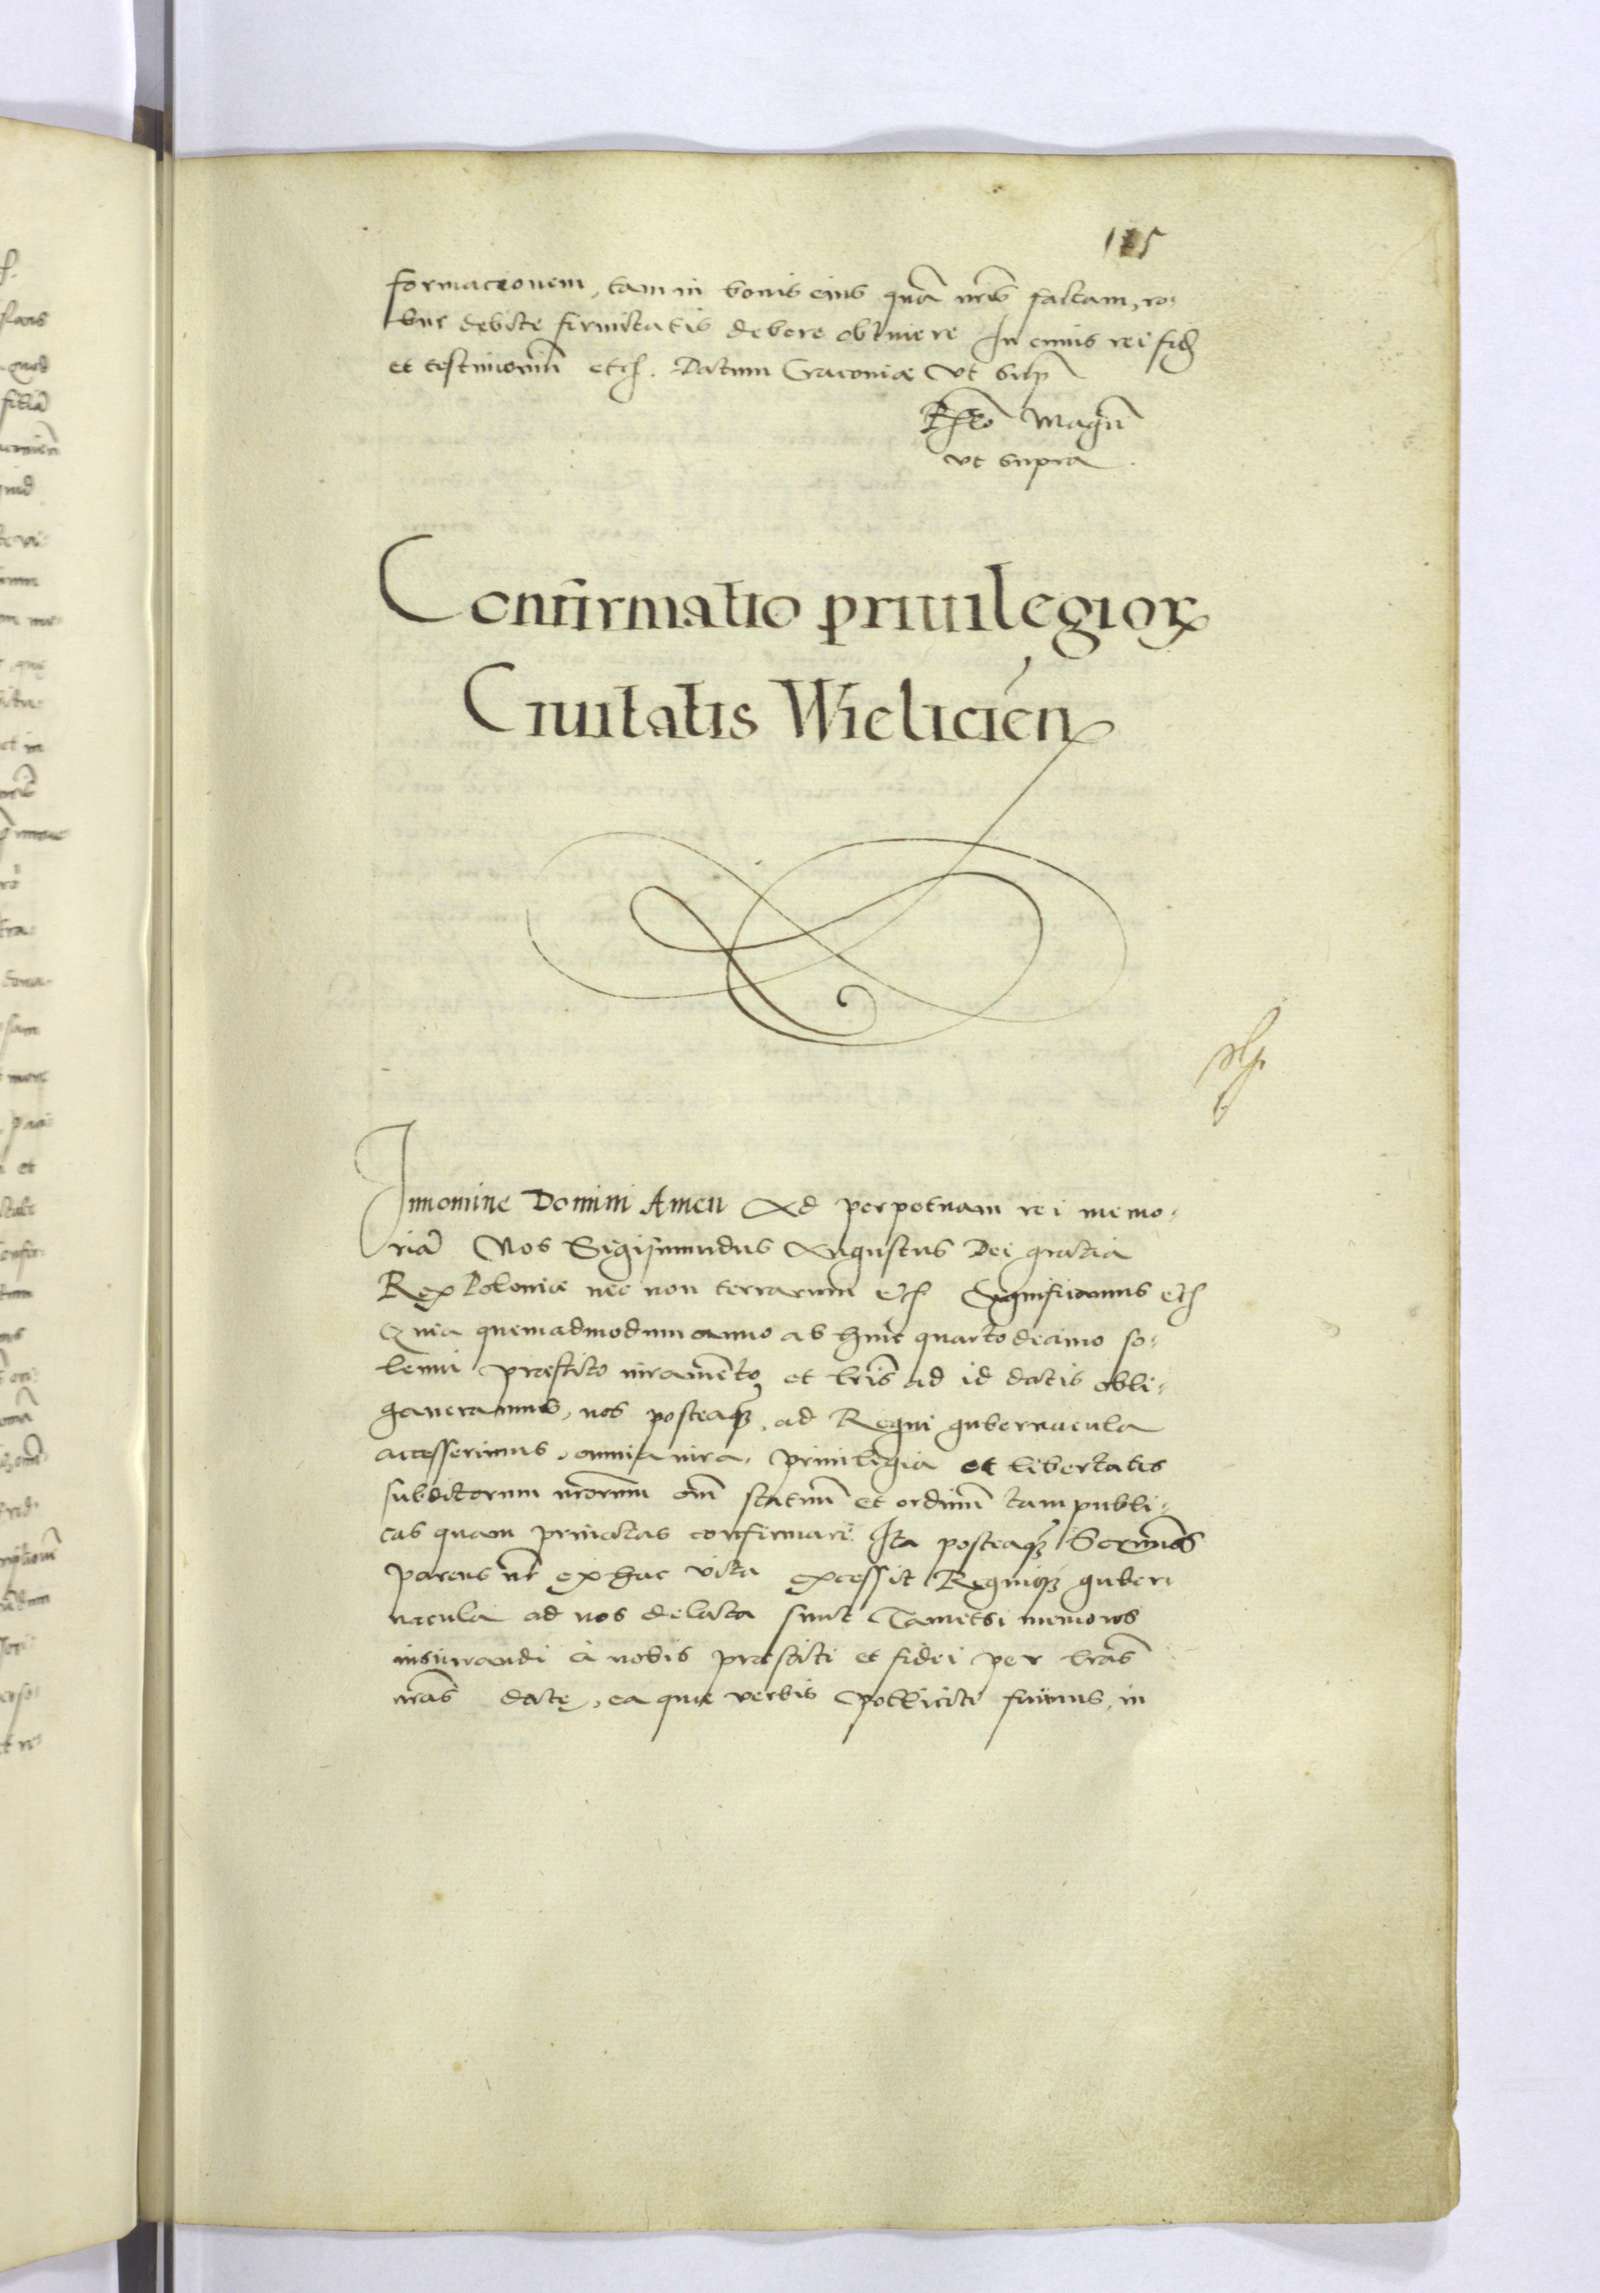 115
formacionem, tam in bonis eius quã nrĩs factam, ro-
bur debite firmitatis debere obtinere In cuius rei fidẽ
et testimoniũ etc. Datum Cracouiæ Vt supr̃
Rl̃o Magc̃i
vt supra.
Confirmatio priuilegioꝝ
Ciuitatis Wielicień
In nomine Domini Amen Ad perpetuam rei memo-
riã Nos Sigismundus Augustus Dei gratia
Rex Poloniæ nec non terrarum etc Significamus etc
Quia quemadmodum anno ab hinc quarto decimo so-
lemni præstito iuramẽto et lrĩs ad id datis obli-
gaueramus, nos posteaqʒ ad Regni gubernacula
accesserimus, omnia iura, priuilegia et libertates
subditorum nr̃orum om̃ statuũ et ordinũ tam publi-
cas quam priuatas confirmare Ita posteaqʒ Sermũs
parens nr̃ ex hac vita excessit Regniqʒ guber-
nacula ad nos delata sunt Tametsi memores
iusiurandi à nobis præstiti et fidei per lrãs
nrãs datę, ea quæ verbis polliciti fuimus, in